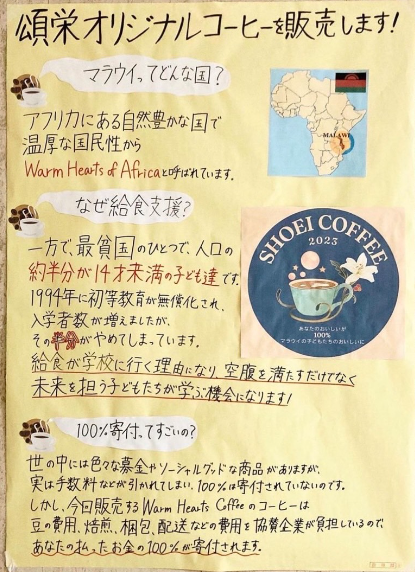 頌栄オリジナルコーヒーを販売します!
マラウイってどんな国?
アフリカにある自然豊かな国で
温厚な国民性から
Warm Hearts of Africaと呼ばれています。
MALAWI
なぜ給食支援?
一方で、最貧国のひとつで、人口の
約半分が14才未満の子ども達です。
1994年に初等教育が無償化され、
入学者数が増えましたが、
その半分がやめてしまっています。
給食が学校に行く理由になり、空腹を満たすだけでなく
未来を担う子どもたちが学ぶ機会になります!
SHOEI COFFEE
2023
あなたのおいしいが
100%
マラウイの子どもたちのおいしいに
100%寄付ってすごいの?
世の中には色々な募金やソーシャルグッドな商品がありますが、
実は手数料などが引かれてしまい、100%は寄付されていないのです。
しかし、今回販売するWarm Hearts Coffeeのコーヒーは
豆の費用、焙煎、梱包、配送などの費用を協賛企業が負担しているので、
あなたの払ったお金の100%が寄付されます。